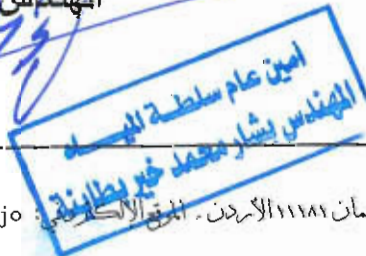 المهندس
امين عام سلطة المياه
المهندس بشار محمد خير بطاينة
مان ١١١٨١ الأردن . الموقع الإلكتروني: jo